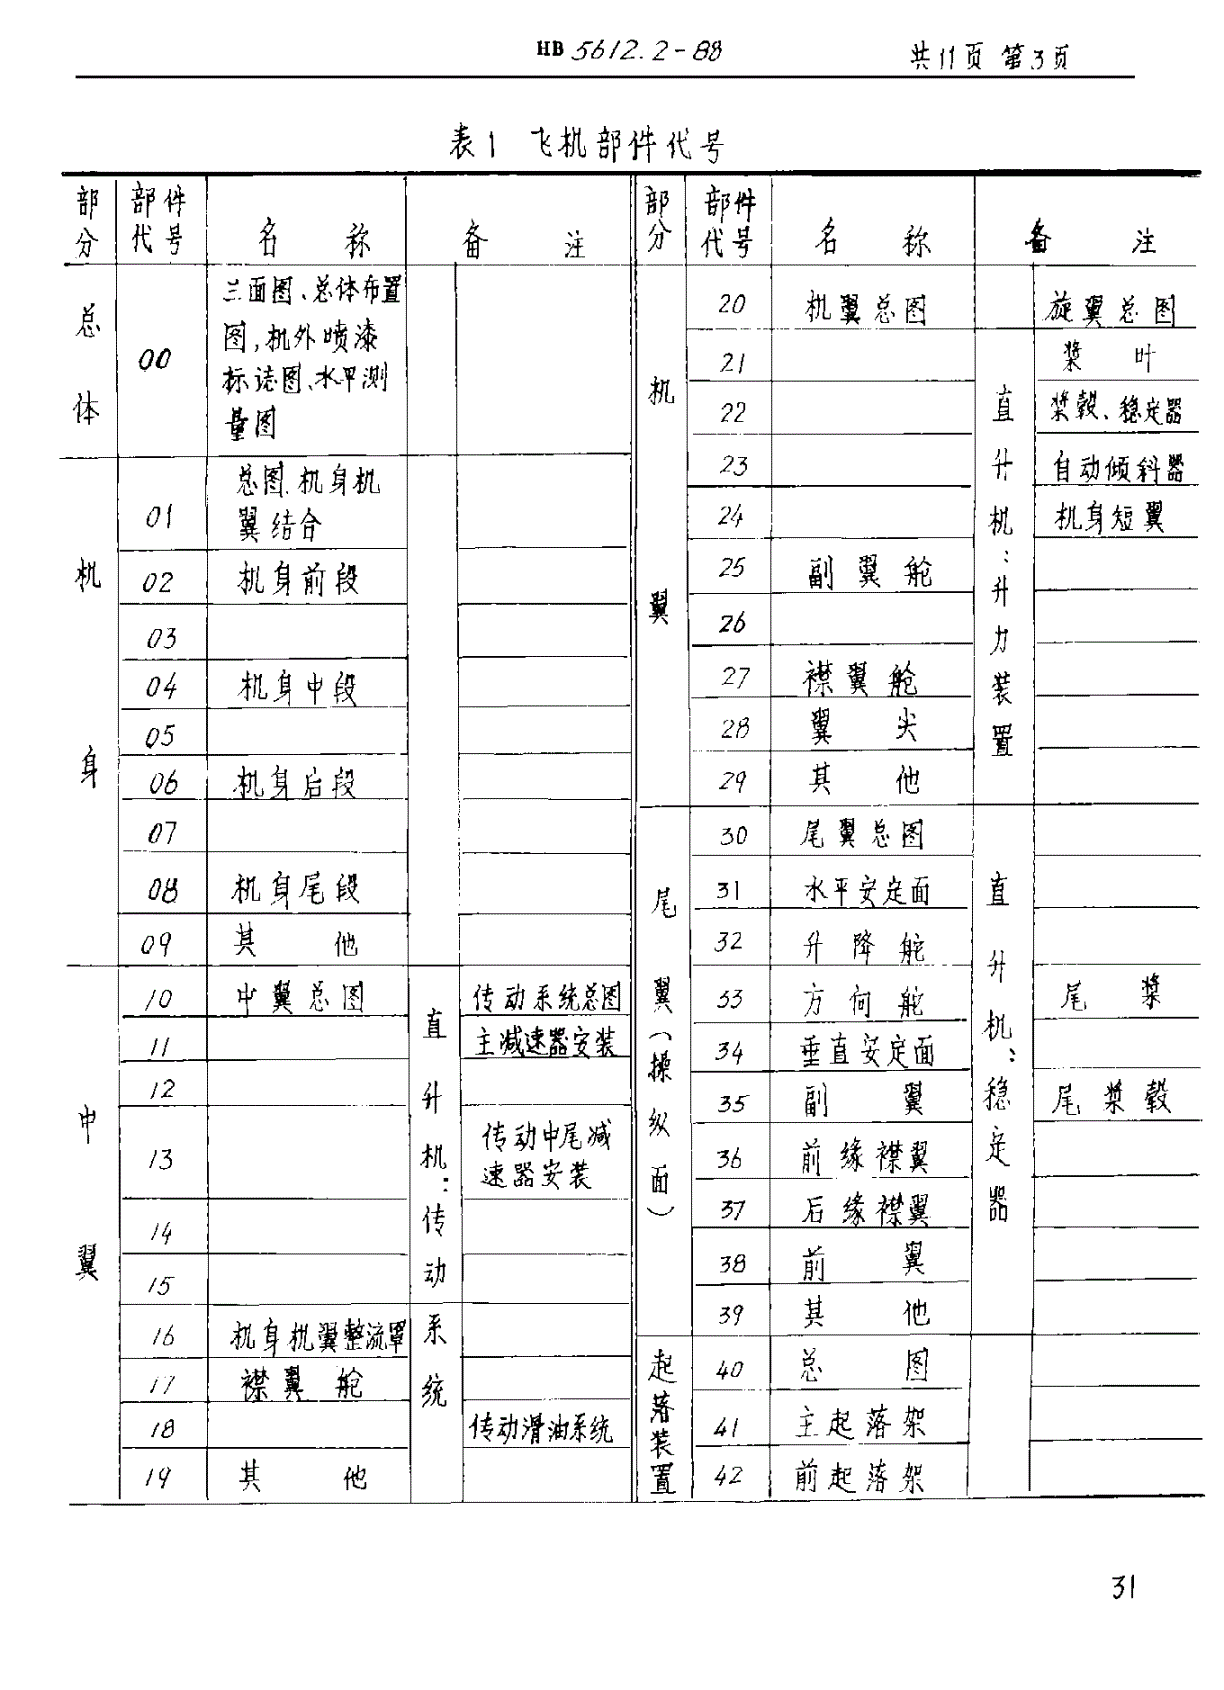 HB 5612.2-88
共11页 第3页
表1 飞机部件代号
部分 部件代号 名称 备注
总体 00 三面图、总体布置
图,机外喷漆
标志图、水平测
量图
机身 01 总图、机身机
翼结合
02 机身前段
03
04 机身中段
05
06 机身后段
07
08 机身尾段
09 其他
中翼 直升机:传动系统
10 中翼总图 传动系统总图
11 主减速器安装
12
13 传动中尾减
速器安装
14
15
16 机身机翼整流罩
17 襟翼舱
18 传动滑油系统
19 其他
部分 部件代号 名称 备注
机翼 直升机:升力装置
20 机翼总图 旋翼总图
21 桨叶
22 桨毂、稳定器
23 自动倾斜器
24 机身短翼
25 副翼舱
26
27 襟翼舱
28 翼尖
29 其他
尾翼(操纵面) 直升机:稳定器
30 尾翼总图
31 水平安定面
32 升降舵
33 方向舵 尾桨
34 垂直安定面
35 副翼 尾桨毂
36 前缘襟翼
37 后缘襟翼
38 前翼
39 其他
起落装置
40 总图
41 主起落架
42 前起落架
31